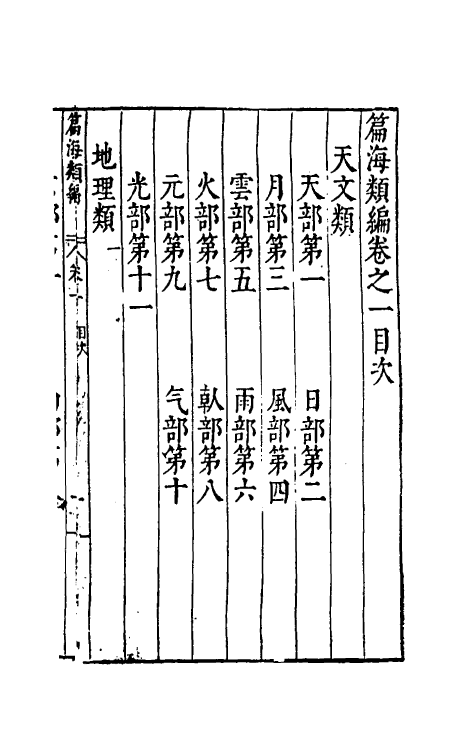 篇海類編卷之一目次
天文類
天部第一 日部第二
月部第三 風部第四
雲部第五 雨部第六
火部第七 倝部第八
元部第九 气部第十
光部第十一
地理類
篇海類編 卷一 目次